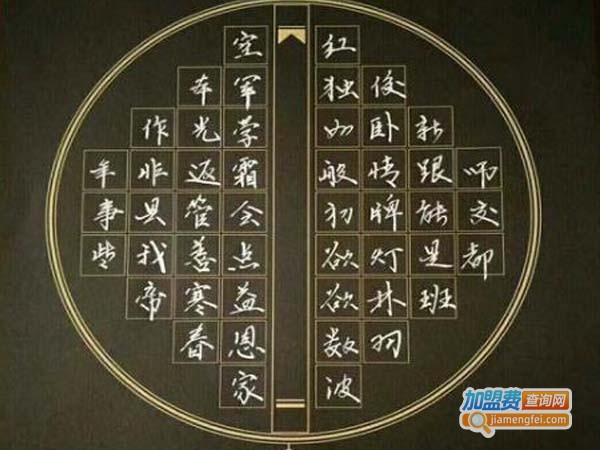 室 红
本 军 独 俊
作 光 学 如 卧 新
年 非 返 霜 般 情 跟 师
事 具 管 会 初 牌 能 交
些 我 善 点 欲 灯 是 都
帝 寒 益 欲 林 班
春 恩 数 羽
家 波
加盟费查询网
jiamengfei.com